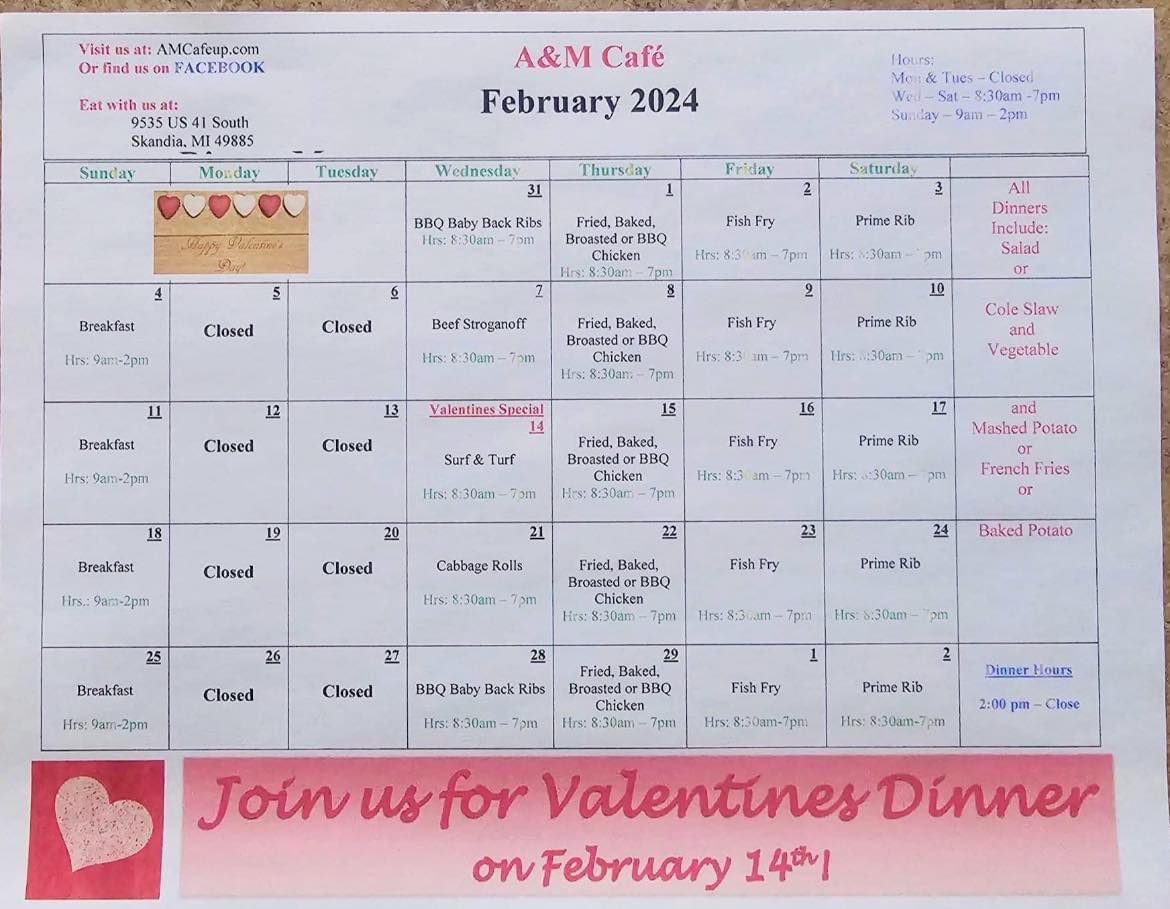 Visit us at: AMCafeup.com
Or find us on FACEBOOK
Eat with us at:
9535 US 41 South
Skandia, MI 49885
A&M Café
February 2024
Hours:
Mon & Tues – Closed
Wed – Sat – 8:30am -7pm
Sunday – 9am – 2pm
Sunday Monday Tuesday Wednesday Thursday Friday Saturday
Happy Valentine's
Day!
31
BBQ Baby Back Ribs
Hrs: 8:30am – 7pm
1
Fried, Baked,
Broasted or BBQ
Chicken
Hrs: 8:30am – 7pm
2
Fish Fry
Hrs: 8:30am – 7pm
3
Prime Rib
Hrs: 8:30am – 7pm
All
Dinners
Include:
Salad
or
4
Breakfast
Hrs: 9am-2pm
5
Closed
6
Closed
7
Beef Stroganoff
Hrs: 8:30am – 7pm
8
Fried, Baked,
Broasted or BBQ
Chicken
Hrs: 8:30am – 7pm
9
Fish Fry
Hrs: 8:30am – 7pm
10
Prime Rib
Hrs: 8:30am – 7pm
Cole Slaw
and
Vegetable
11
Breakfast
Hrs: 9am-2pm
12
Closed
13
Closed
Valentines Special
14
Surf & Turf
Hrs: 8:30am – 7pm
15
Fried, Baked,
Broasted or BBQ
Chicken
Hrs: 8:30am – 7pm
16
Fish Fry
Hrs: 8:30am – 7pm
17
Prime Rib
Hrs: 8:30am – 7pm
and
Mashed Potato
or
French Fries
or
18
Breakfast
Hrs.: 9am-2pm
19
Closed
20
Closed
21
Cabbage Rolls
Hrs: 8:30am – 7pm
22
Fried, Baked,
Broasted or BBQ
Chicken
Hrs: 8:30am – 7pm
23
Fish Fry
Hrs: 8:30am – 7pm
24
Prime Rib
Hrs: 8:30am – 7pm
Baked Potato
25
Breakfast
Hrs: 9am-2pm
26
Closed
27
Closed
28
BBQ Baby Back Ribs
Hrs: 8:30am – 7pm
29
Fried, Baked,
Broasted or BBQ
Chicken
Hrs: 8:30am – 7pm
1
Fish Fry
Hrs: 8:30am-7pm
2
Prime Rib
Hrs: 8:30am-7pm
Dinner Hours
2:00 pm – Close
Join us for Valentines Dinner
on February 14th!